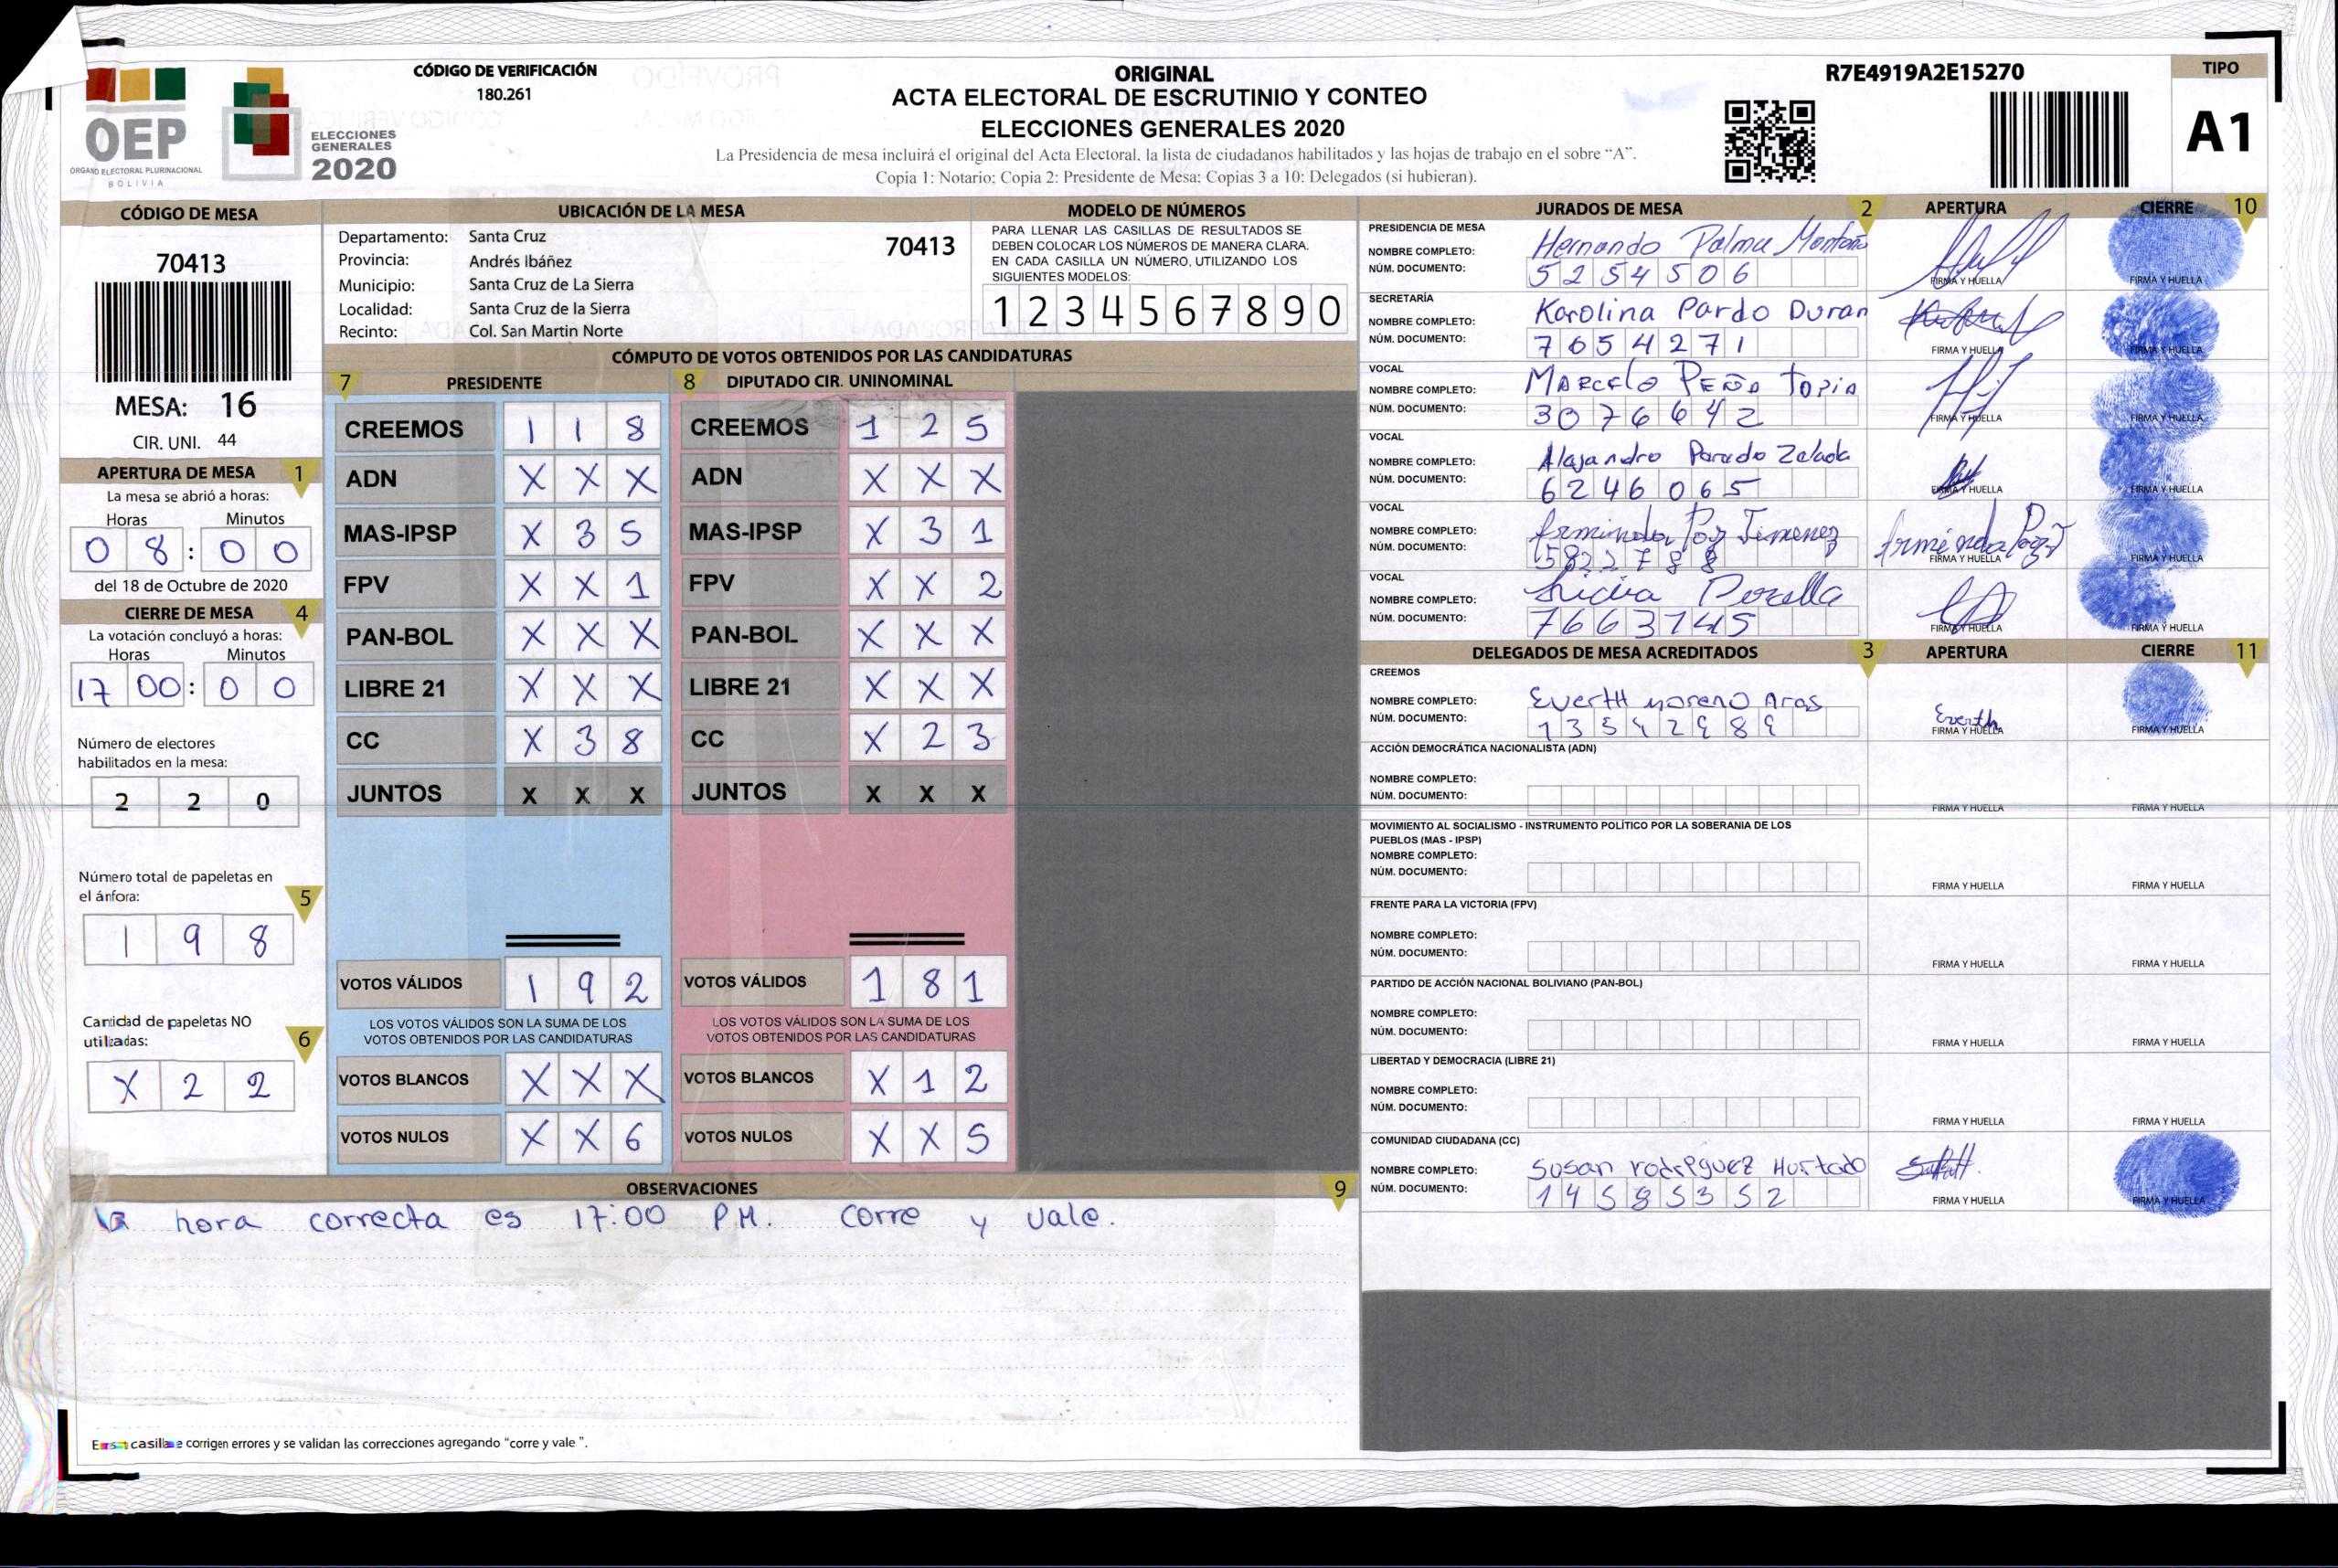 OEP
ÓRGANO ELECTORAL PLURINACIONAL
BOLIVIA
ELECCIONES
GENERALES
2020
CÓDIGO DE VERIFICACIÓN
180.261
ORIGINAL
ACTA ELECTORAL DE ESCRUTINIO Y CONTEO
ELECCIONES GENERALES 2020
La Presidencia de mesa incluirá el original del Acta Electoral, la lista de ciudadanos habilitados y las hojas de trabajo en el sobre “A”.
Copia 1: Notario; Copia 2: Presidente de Mesa; Copias 3 a 10: Delegados (si hubieran).
R7E4919A2E15270
TIPO
A1
CÓDIGO DE MESA
70413
MESA: 16
CIR. UNI. 44
APERTURA DE MESA 1
La mesa se abrió a horas:
Horas Minutos
0 8 : 0 0
del 18 de Octubre de 2020
CIERRE DE MESA 4
La votación concluyó a horas:
Horas Minutos
17 00 : 0 0
Número de electores
habilitados en la mesa:
2 2 0
Número total de papeletas en
el ánfora: 5
1 9 8
Cantidad de papeletas NO
utilizadas: 6
X 2 2
UBICACIÓN DE LA MESA
Departamento: Santa Cruz 70413
Provincia: Andrés Ibáñez
Municipio: Santa Cruz de La Sierra
Localidad: Santa Cruz de la Sierra
Recinto: Col. San Martin Norte
MODELO DE NÚMEROS
PARA LLENAR LAS CASILLAS DE RESULTADOS SE
DEBEN COLOCAR LOS NÚMEROS DE MANERA CLARA.
EN CADA CASILLA UN NÚMERO, UTILIZANDO LOS
SIGUIENTES MODELOS:
1 2 3 4 5 6 7 8 9 0
CÓMPUTO DE VOTOS OBTENIDOS POR LAS CANDIDATURAS
7 PRESIDENTE 8 DIPUTADO CIR. UNINOMINAL
CREEMOS 1 1 8 CREEMOS 1 2 5
ADN X X X ADN X X X
MAS-IPSP X 3 5 MAS-IPSP X 3 1
FPV X X 1 FPV X X 2
PAN-BOL X X X PAN-BOL X X X
LIBRE 21 X X X LIBRE 21 X X X
CC X 3 8 CC X 2 3
JUNTOS X X X JUNTOS X X X
VOTOS VÁLIDOS 1 9 2 VOTOS VÁLIDOS 1 8 1
LOS VOTOS VÁLIDOS SON LA SUMA DE LOS LOS VOTOS VÁLIDOS SON LA SUMA DE LOS
VOTOS OBTENIDOS POR LAS CANDIDATURAS VOTOS OBTENIDOS POR LAS CANDIDATURAS
VOTOS BLANCOS X X X VOTOS BLANCOS X 1 2
VOTOS NULOS X X 6 VOTOS NULOS X X 5
OBSERVACIONES 9
la hora correcta es 17:00 PM. corre y vale.
casilla se corrigen errores y se validan las correcciones agregando “corre y vale ”.
JURADOS DE MESA 2 APERTURA CIERRE 10
PRESIDENCIA DE MESA
NOMBRE COMPLETO: Hernando Palma Montaño
NÚM. DOCUMENTO: 5 2 5 4 5 0 6
FIRMA Y HUELLA FIRMA Y HUELLA
SECRETARÍA
NOMBRE COMPLETO: Karolina Pardo Duran
NÚM. DOCUMENTO: 7 6 5 4 2 7 1
FIRMA Y HUELLA FIRMA Y HUELLA
VOCAL
NOMBRE COMPLETO: Marcelo Peña Tapia
NÚM. DOCUMENTO: 3 0 7 6 6 4 2
FIRMA Y HUELLA FIRMA Y HUELLA
VOCAL
NOMBRE COMPLETO: Alajandro Parado Zelada
NÚM. DOCUMENTO: 6 2 4 6 0 6 5
FIRMA Y HUELLA FIRMA Y HUELLA
VOCAL
NOMBRE COMPLETO: Arminda Poz Jimenez
NÚM. DOCUMENTO: 5 8 2 2 7 8 8
FIRMA Y HUELLA FIRMA Y HUELLA
VOCAL
NOMBRE COMPLETO:
NÚM. DOCUMENTO: 7 6 6 3 7 4 5
FIRMA Y HUELLA FIRMA Y HUELLA
DELEGADOS DE MESA ACREDITADOS 3 APERTURA CIERRE 11
CREEMOS
NOMBRE COMPLETO: Everth moreno Aras
NÚM. DOCUMENTO: 1 3 5 4 2 9 8 9
Everth
FIRMA Y HUELLA FIRMA Y HUELLA
ACCIÓN DEMOCRÁTICA NACIONALISTA (ADN)
NOMBRE COMPLETO:
NÚM. DOCUMENTO:
FIRMA Y HUELLA FIRMA Y HUELLA
MOVIMIENTO AL SOCIALISMO - INSTRUMENTO POLÍTICO POR LA SOBERANIA DE LOS
PUEBLOS (MAS - IPSP)
NOMBRE COMPLETO:
NÚM. DOCUMENTO:
FIRMA Y HUELLA FIRMA Y HUELLA
FRENTE PARA LA VICTORIA (FPV)
NOMBRE COMPLETO:
NÚM. DOCUMENTO:
FIRMA Y HUELLA FIRMA Y HUELLA
PARTIDO DE ACCIÓN NACIONAL BOLIVIANO (PAN-BOL)
NOMBRE COMPLETO:
NÚM. DOCUMENTO:
FIRMA Y HUELLA FIRMA Y HUELLA
LIBERTAD Y DEMOCRACIA (LIBRE 21)
NOMBRE COMPLETO:
NÚM. DOCUMENTO:
FIRMA Y HUELLA FIRMA Y HUELLA
COMUNIDAD CIUDADANA (CC)
NOMBRE COMPLETO: Susan rodriguez Hurtado
NÚM. DOCUMENTO: 1 4 5 8 5 3 5 2
FIRMA Y HUELLA FIRMA Y HUELLA